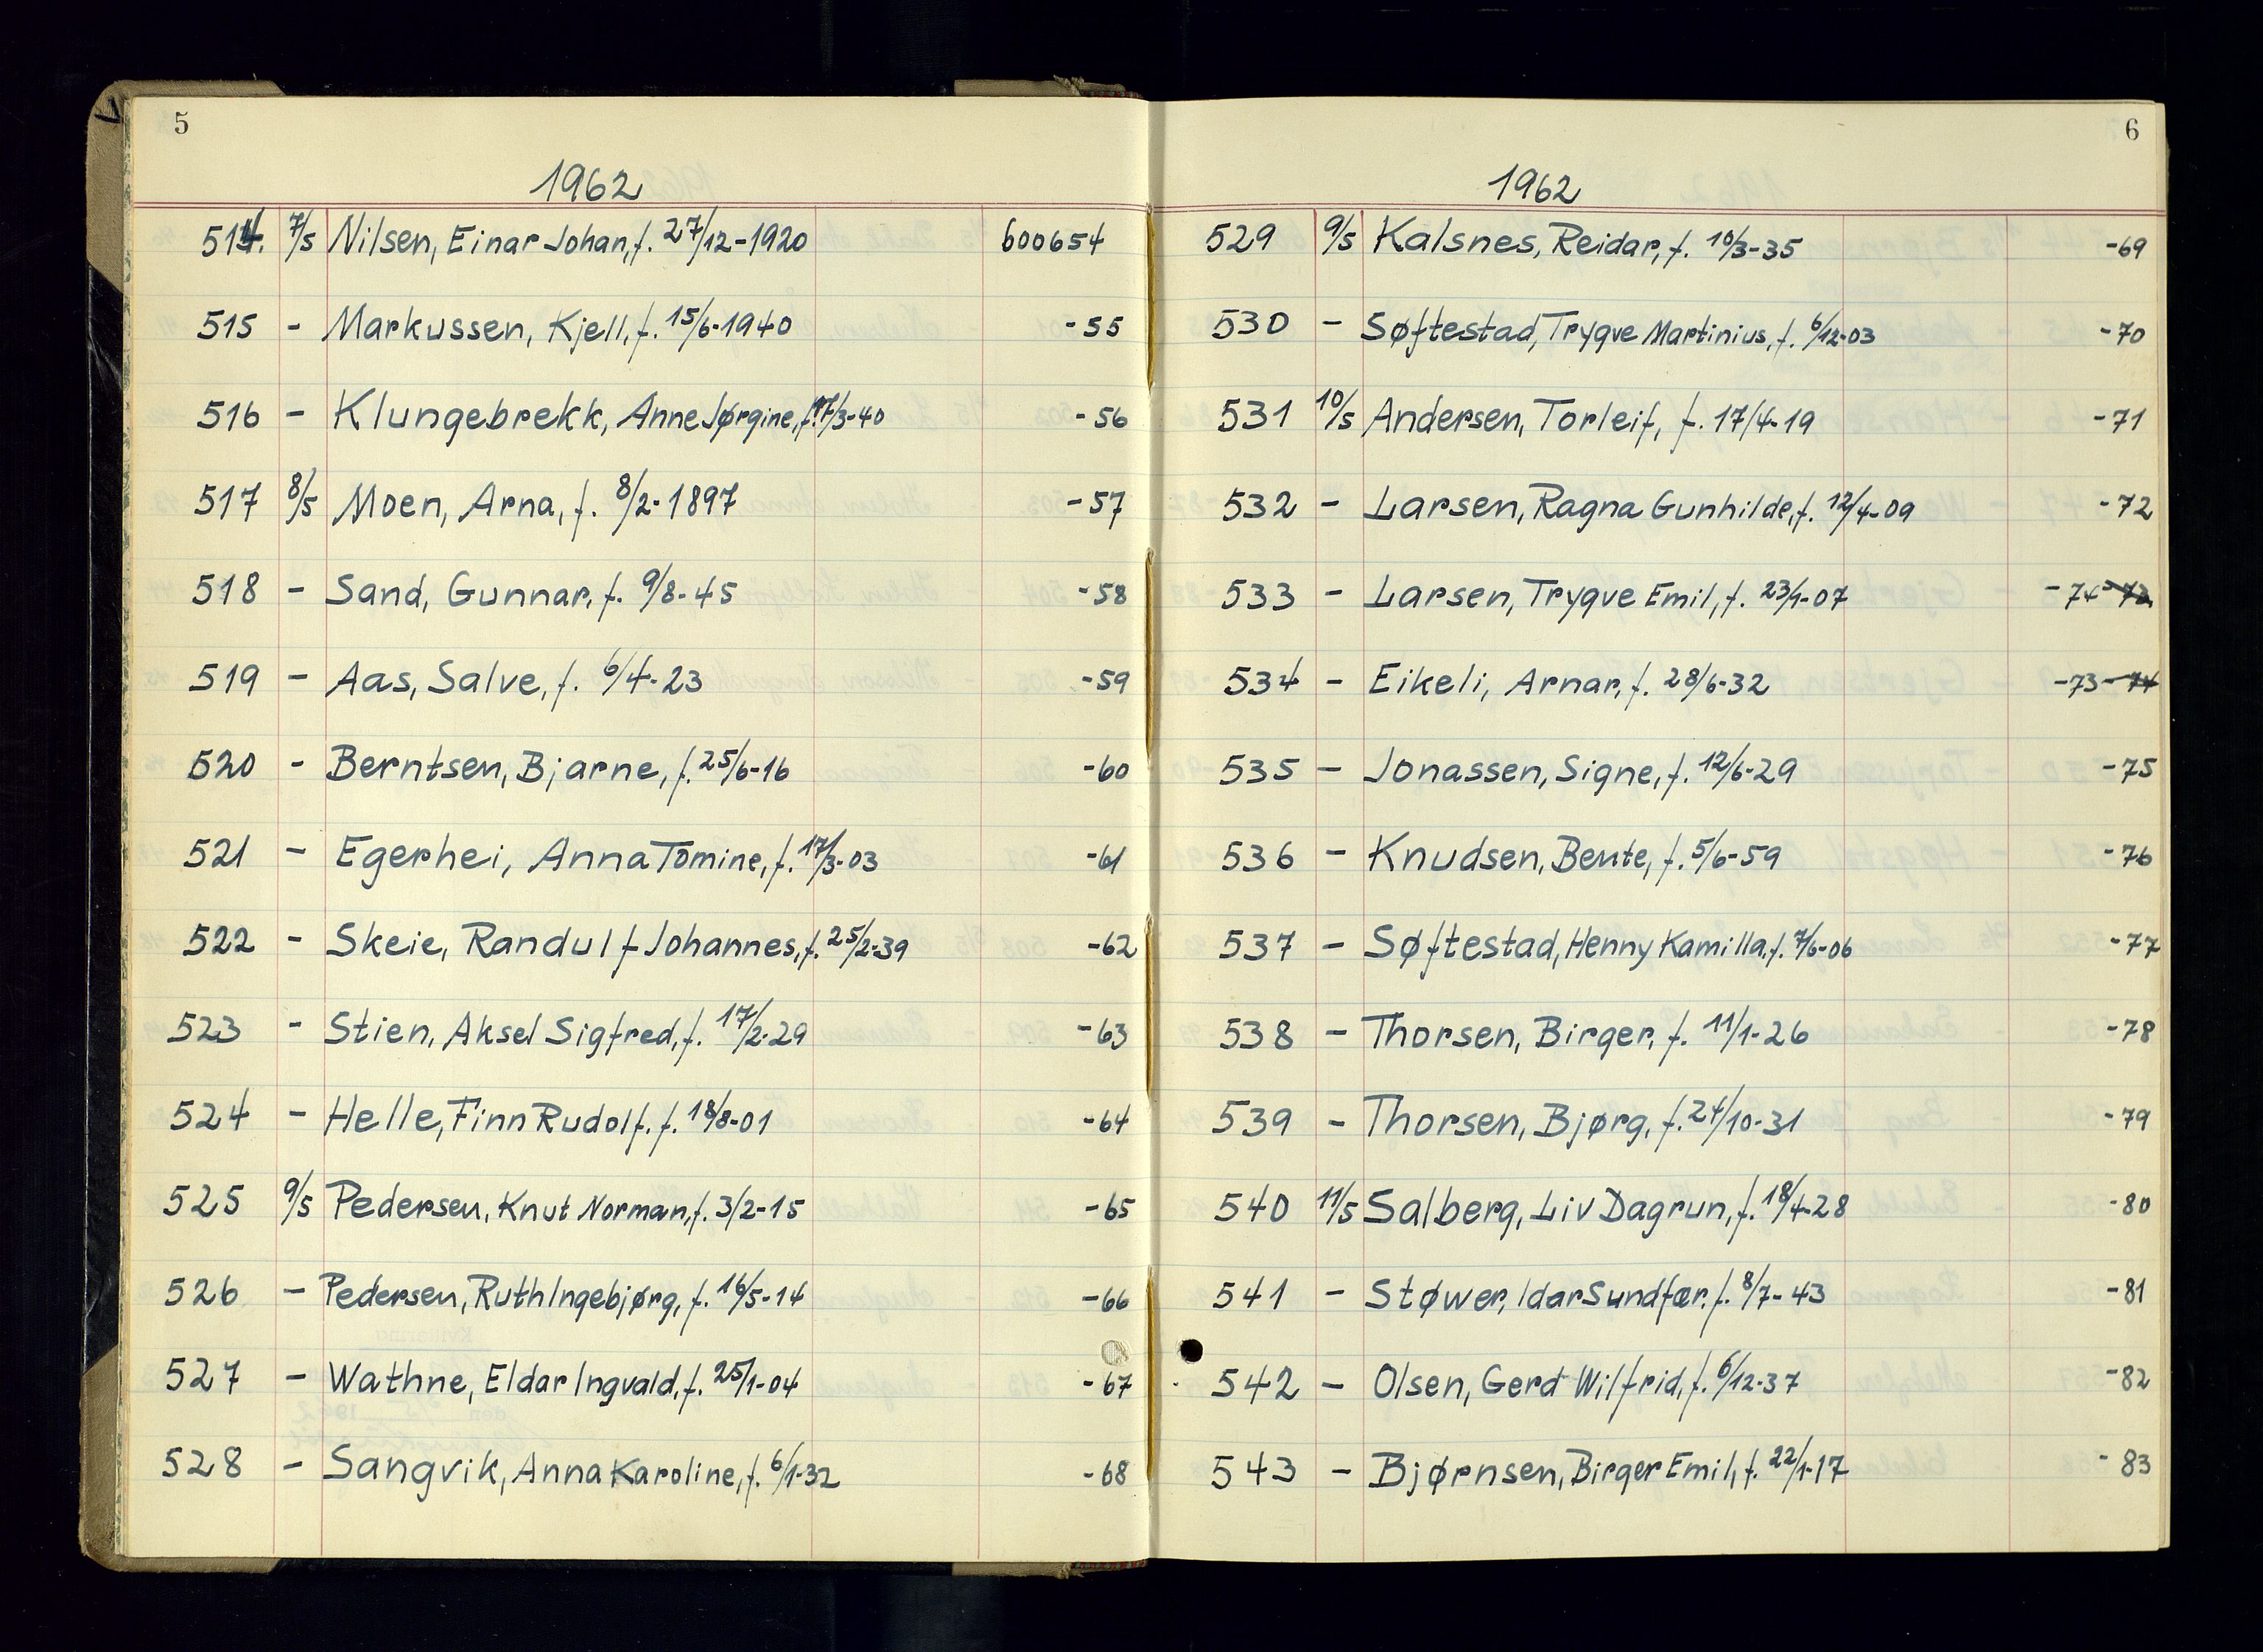 5
1962
514. 7/5 Nilsen, Einar Johan, f. 27/12-1920 600654
515 - Markussen, Kjell, f. 15/6-1940 -55
516 - Klungebrekk, Anne Jørgine, f. 17/3-40 -56
517 8/5 Moen, Arna, f. 8/2-1897 -57
518 - Sand, Gunnar, f. 9/8-45 -58
519 - Aas, Salve, f. 6/4-23 -59
520 - Berntsen, Bjarne, f. 25/6-16 -60
521 - Egerhei, Anna Tomine, f. 17/3-03 -61
522 - Skeie, Randulf Johannes, f. 25/2-39 -62
523 - Stien, Aksel Sigfred, f. 17/2-29 -63
524 - Helle, Finn Rudolf. f. 18/8-01 -64
525 9/5 Pedersen, Knut Norman, f. 3/2-15 -65
526 - Pedersen, Ruth Ingebjørg, f. 16/5-14 -66
527 - Wathne, Eldar Ingvald, f. 25/1-04 -67
528 - Sangvik, Anna Karoline, f. 6/1-32 -68
6
1962
529 9/5 Kalsnes, Reidar, f. 10/3-35 -69
530 - Søftestad, Trygve Martinius, f. 6/12-03 -70
531 10/5 Andersen, Torleif, f. 17/4-19 -71
532 - Larsen, Ragna Gunhilde, f. 12/4-09 -72
533 - Larsen, Trygve Emil, f. 23/1-07 -74 -73
534 - Eikeli, Arnar, f. 28/6-32 -73 -74
535 - Jonassen, Signe, f. 12/6-29 -75
536 - Knudsen, Bente, f. 5/6-59 -76
537 - Søftestad, Henny Kamilla, f. 7/6-06 -77
538 - Thorsen, Birger, f. 11/1-26 -78
539 - Thorsen, Bjørg, f. 24/10-31 -79
540 11/5 Salberg, Liv Dagrun, f. 18/4-28 -80
541 - Støwer, Idar Sundfær, f. 8/7-43 -81
542 - Olsen, Gerd Wilfrid, f. 6/12-37 -82
543 - Bjørnsen, Birger Emil, f. 22/1-17 -83